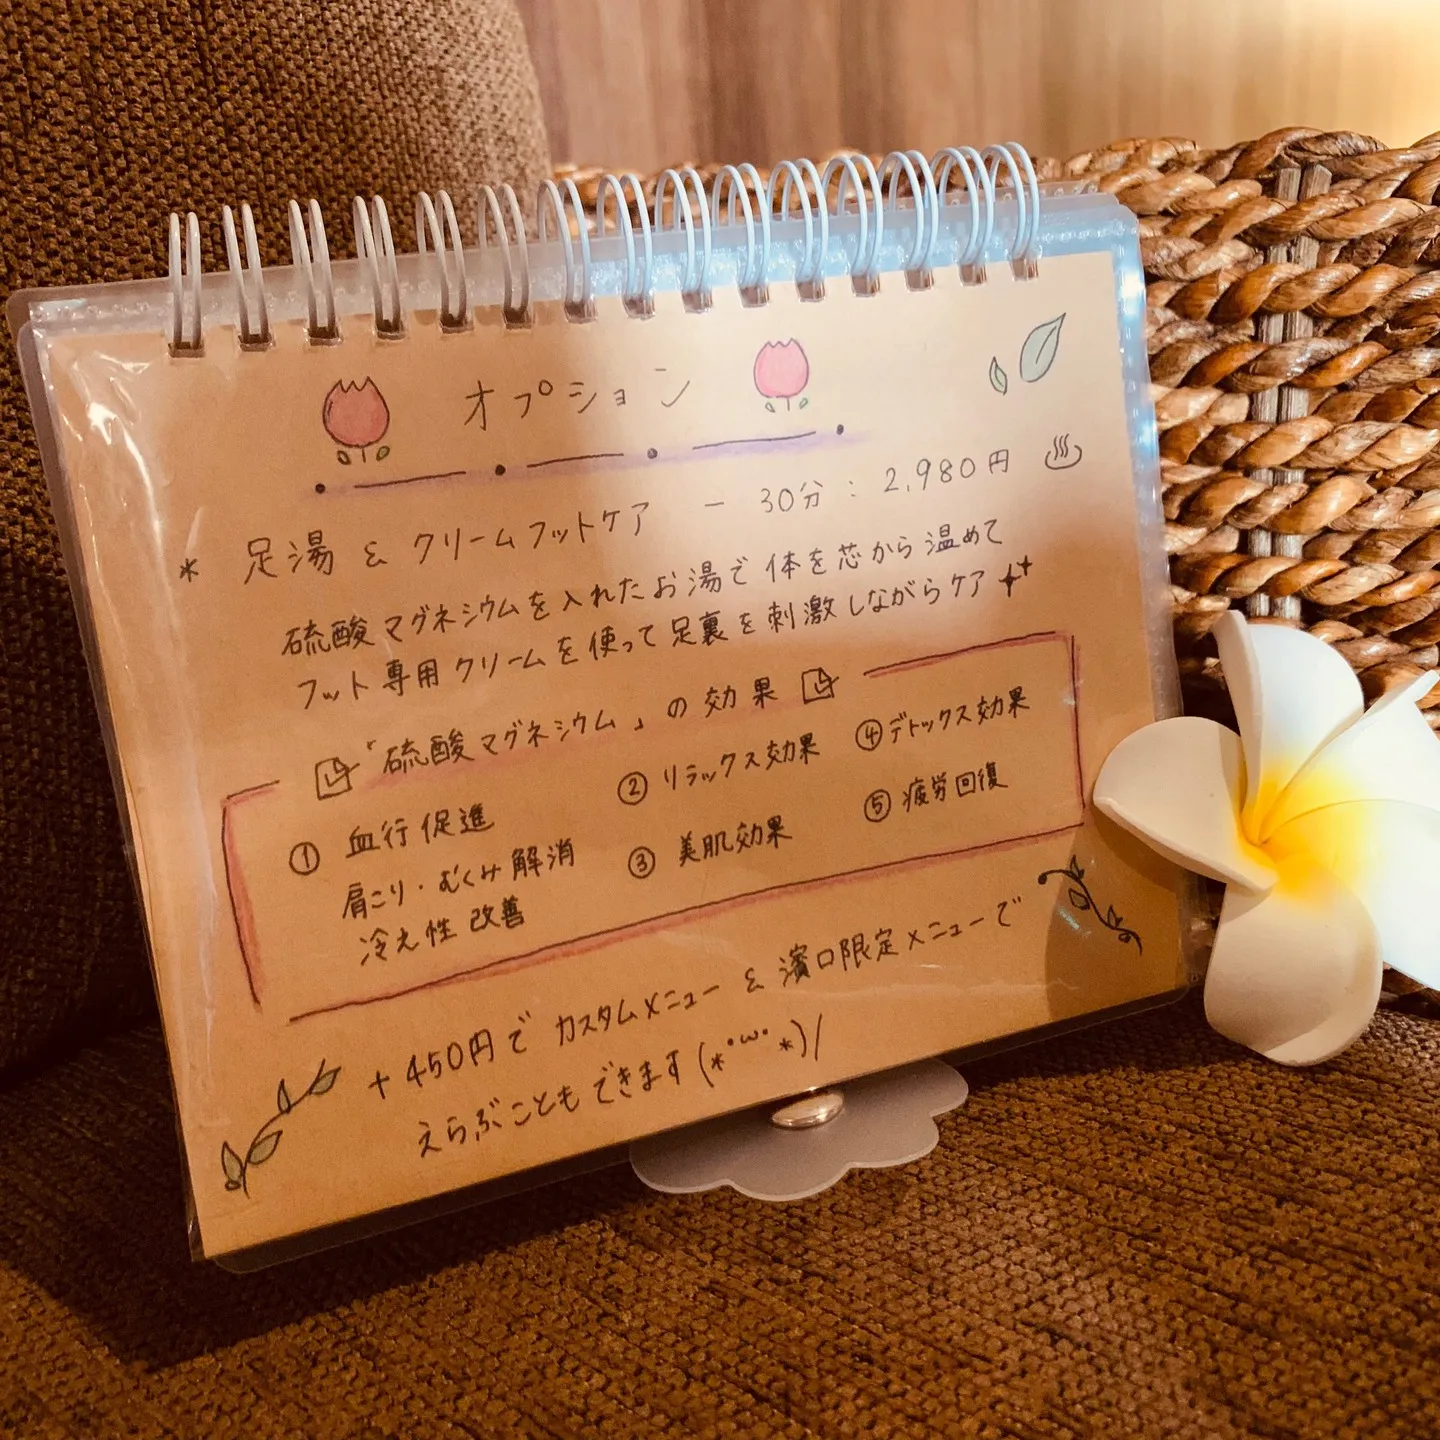 オプション
* 足湯 & クリームフットケア － 30分 : 2,980円 ♨
硫酸マグネシウムを入れたお湯で体を芯から温めて
フット専用クリームを使って足裏を刺激しながらケア
「硫酸マグネシウム」の効果
① 血行促進
肩こり・むくみ解消
冷え性改善
② リラックス効果
③ 美肌効果
④ デトックス効果
⑤ 疲労回復
+450円でカスタムメニュー & 濱口限定メニューで
えらぶこともできます(*･ω･*)/